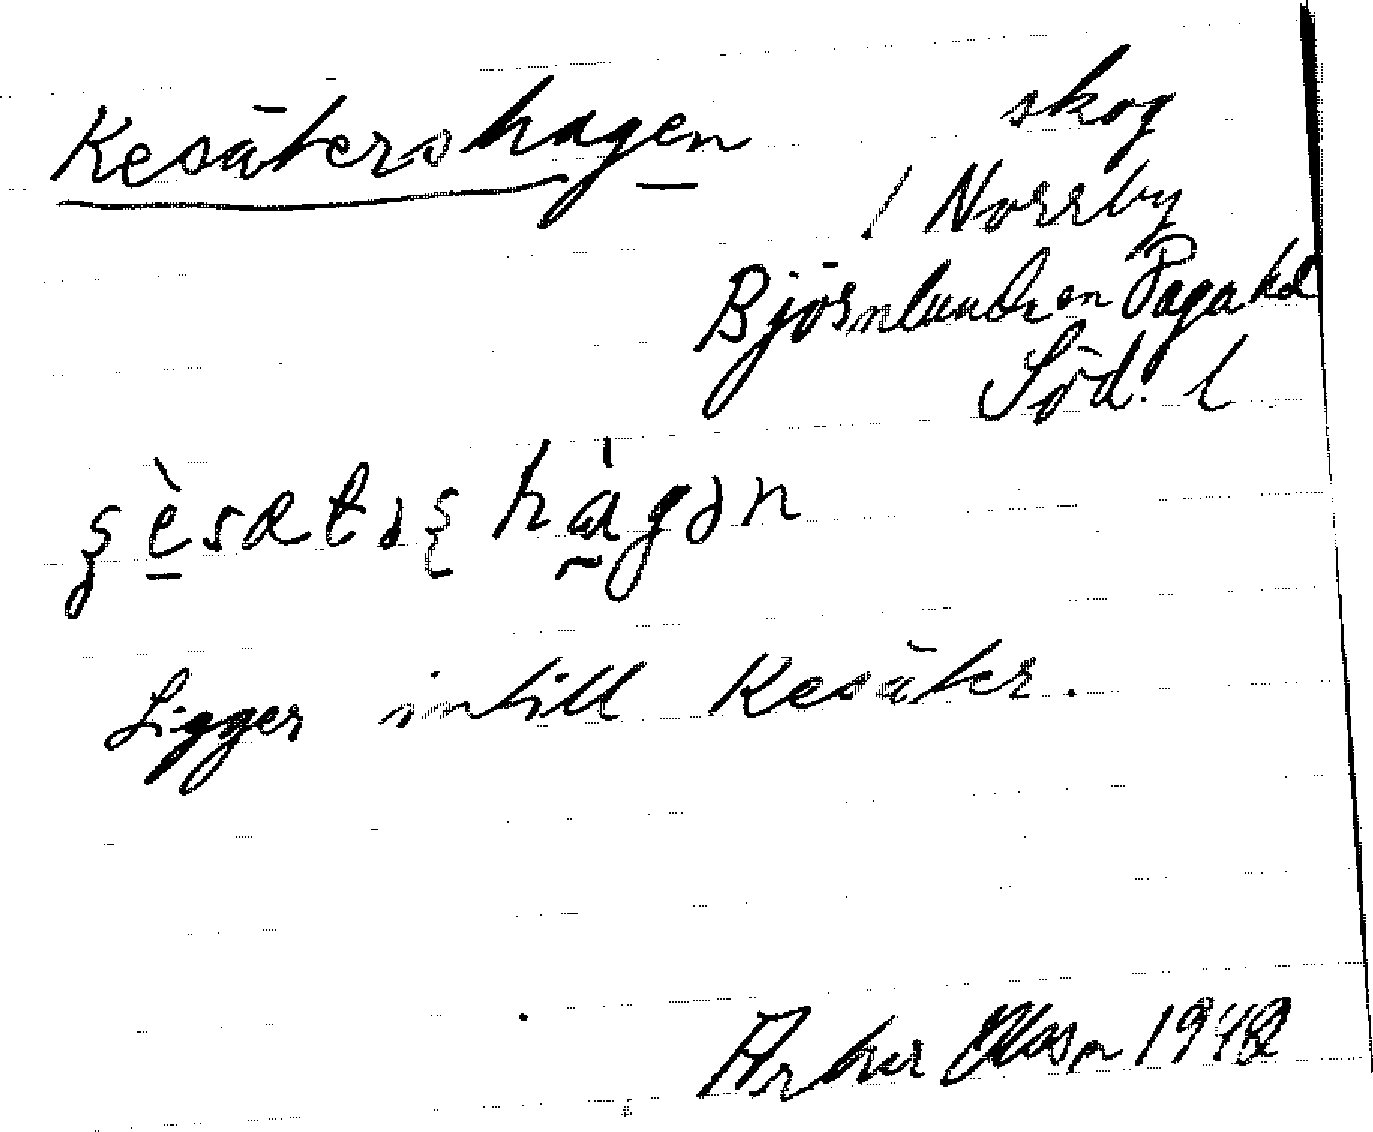 Kesätershagen skog
i Norrby
Björnlunda sn Daga hd
Söd. l
Ligger intill Kesäter.
Arthur Olsson 1942